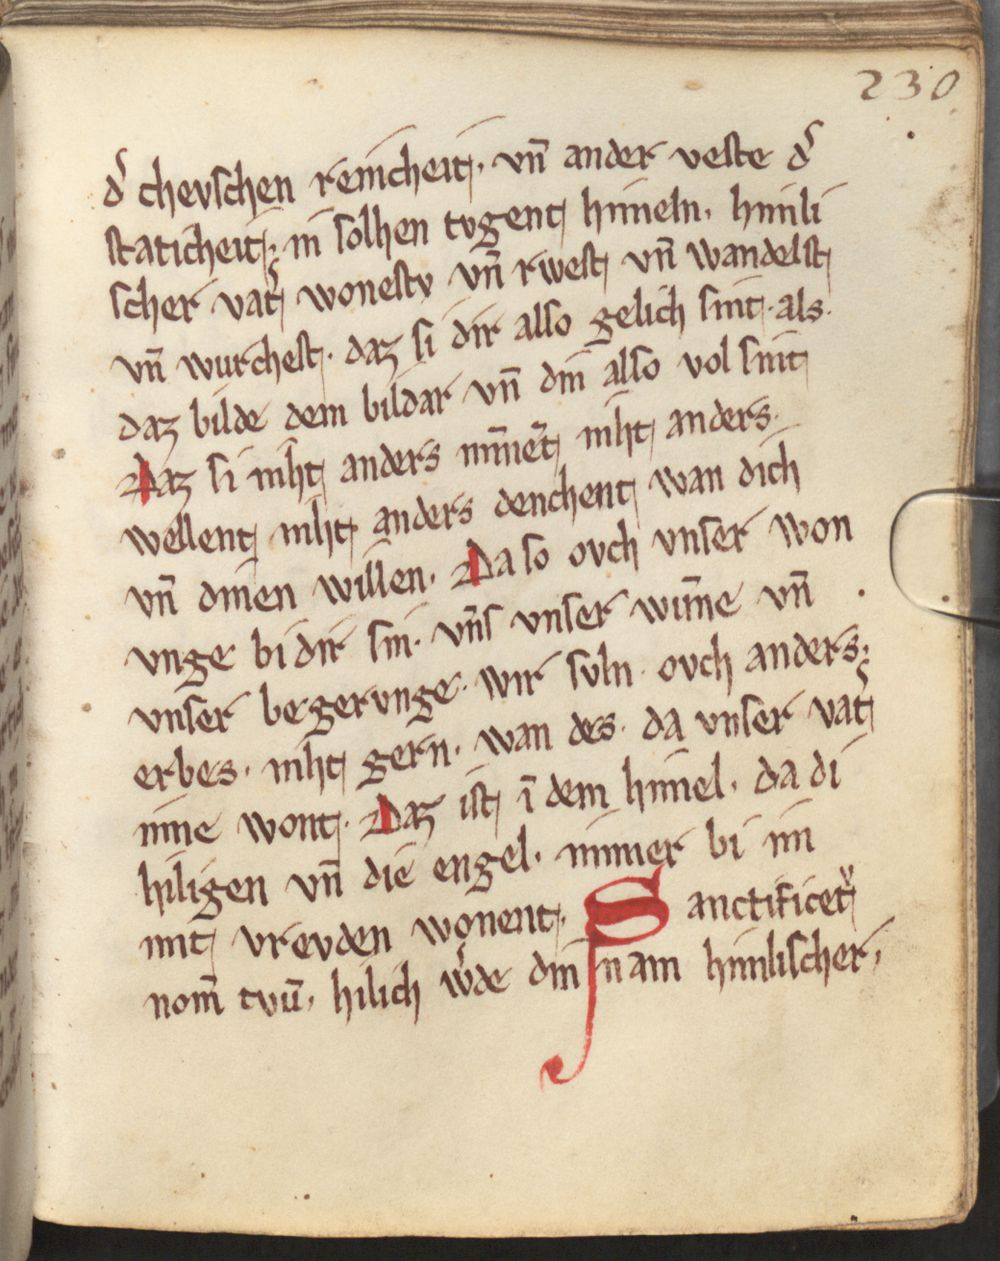 230
dˀ chevschen reinicheit· vn̄ ander veste dˀ
staticheit· in solhen tvgent himeln· himili
scher vatˀ wonestv vn̄ rwest vn̄ wandelst
vn̄ wurchest· daz si dir also gelich sint·als·
daz bilde dem bildar vn̄ din also vol sint
Daz si niht anders minnet niht anders·
wellent niht anders denchent wan dich
vn̄ dinen willen· Da so ovch vnser won
vnge bi dir sin· vn̄s vnser win̄e vn̄
vnser begervnge· wir svln· ovch anders·
erbes· niht gern· wan des· da vnser vatˀ
inne wont· Daz ist ī dem himel· da di
hiligen vn̄ die engel· nimer bi im
mit vrevden wonent· Sanctificetˀ
nom̄ tvū· hilich wˀde din nam himlischer·